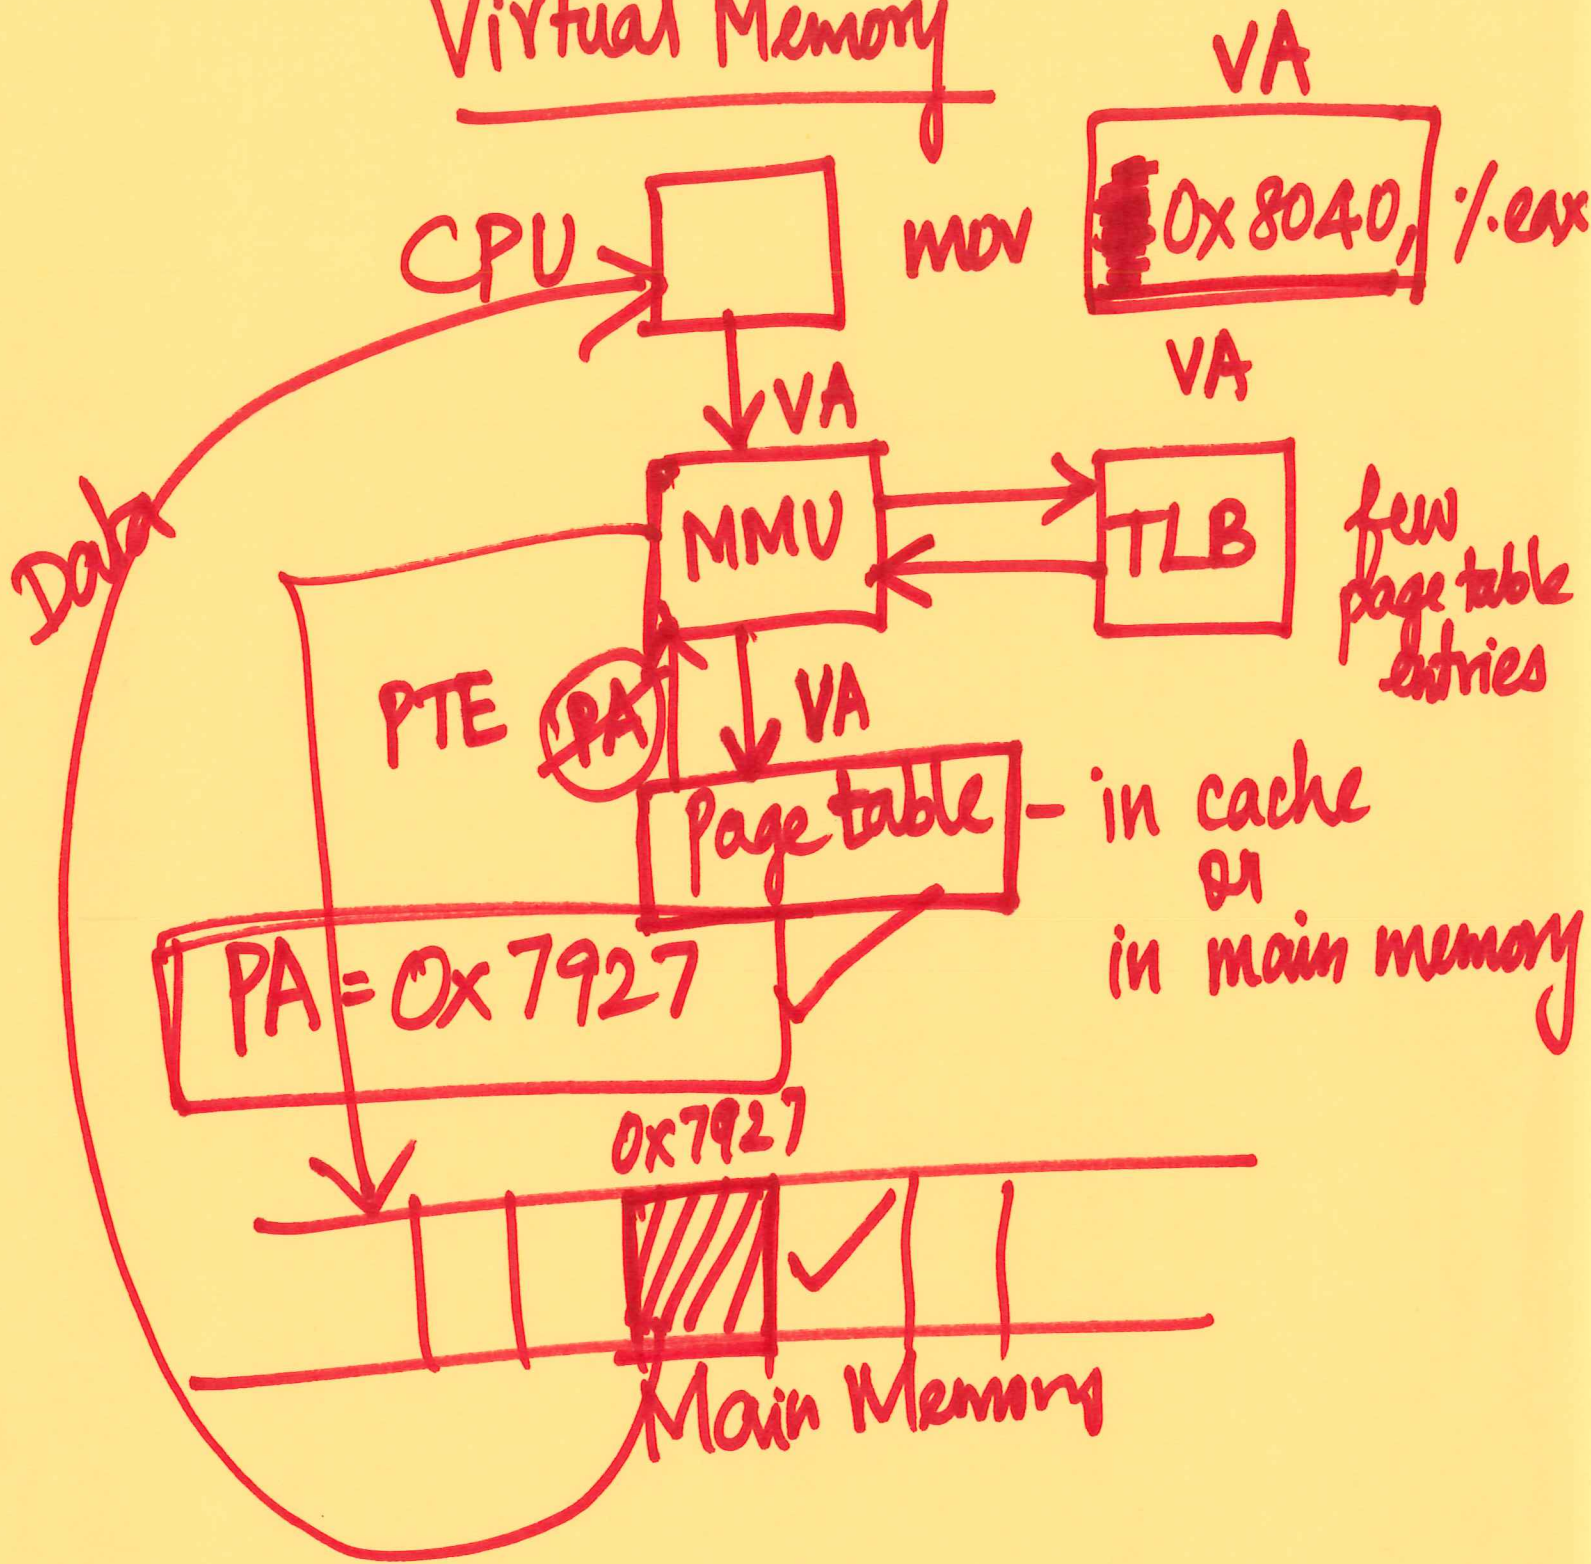 Virtual Memory
VA
CPU
mov 0x8040, %eax
VA
VA
Data
MMU
TLB
few
page table
entries
PTE
PA
VA
Page table - in cache
or
in main memory
PA = 0x7927
0x7927
Main Memory